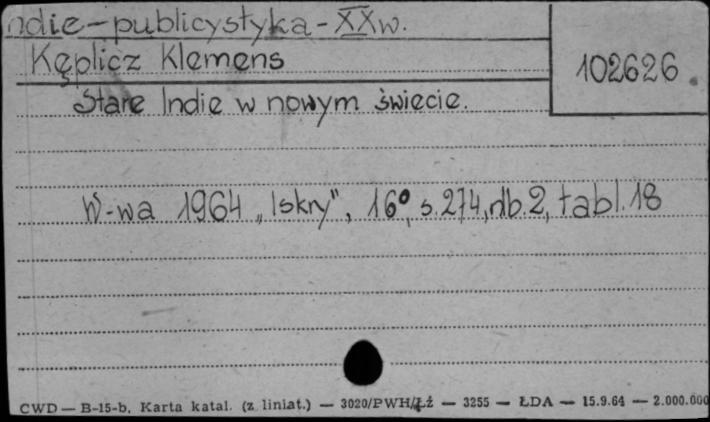 ndie-publicystyka-XXw.
Kęplicz Klemens
102626.
Stare Indie w nowym świecie.
W-wa 1964 „Iskry”, 16°, s.274, nlb.2, tabl.18
CWD — B-15-b, Karta katal. (z liniat.) — 3020/PWH/Łż — 3255 — ŁDA — 15.9.64 — 2.000.000